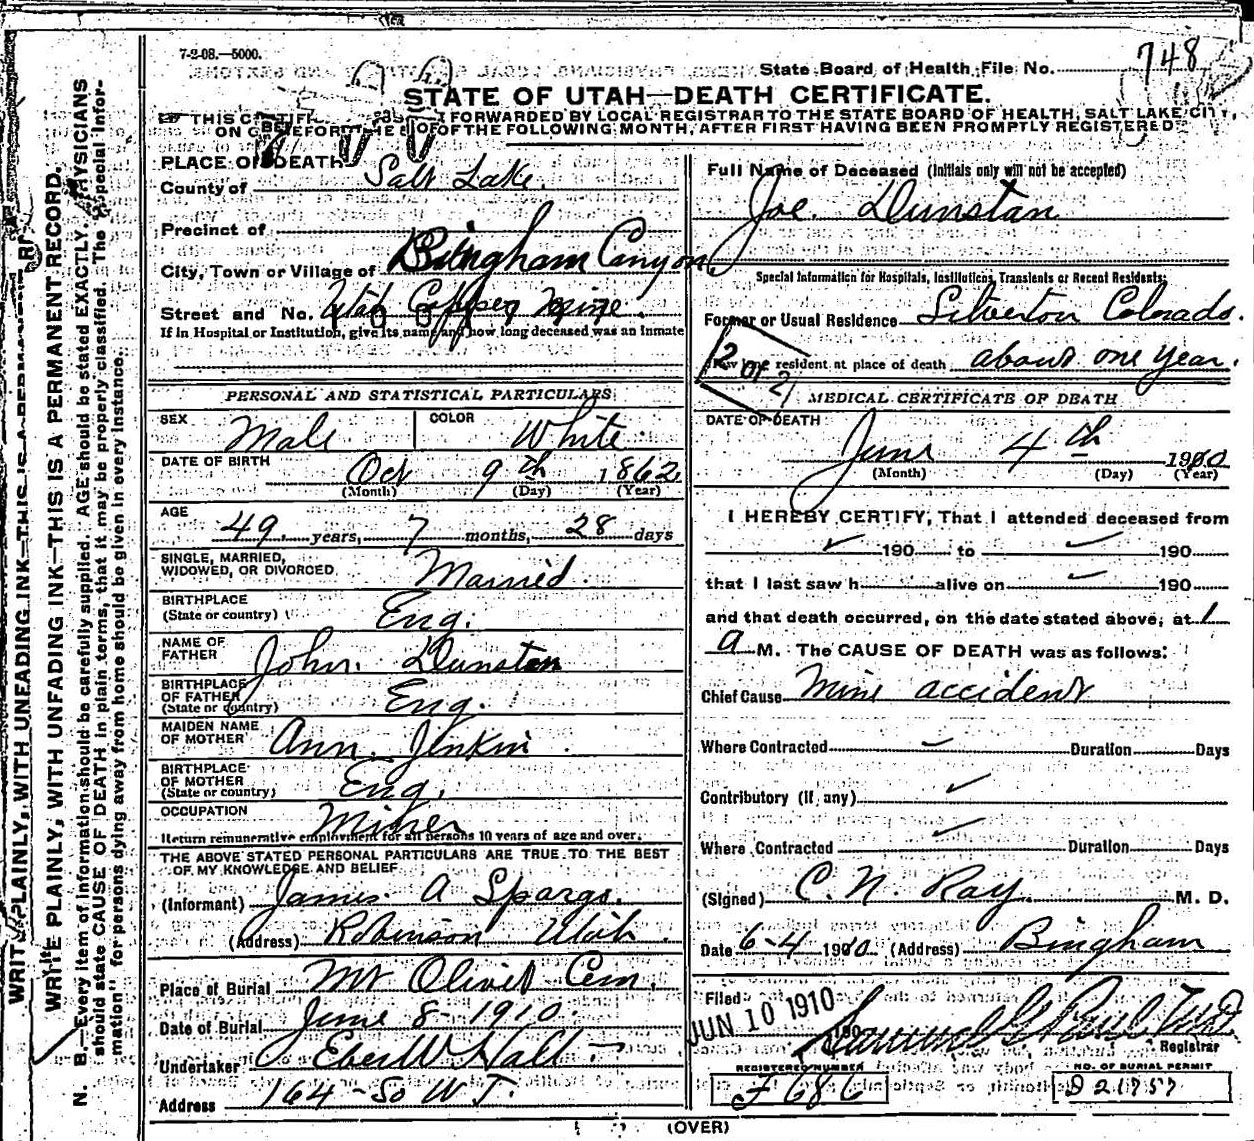 7-2-08.—5000.
State Board of Health File No. 748
STATE OF UTAH—DEATH CERTIFICATE.
THIS CERTIFI FORWARDED BY LOCAL REGISTRAR TO THE STATE BOARD OF HEALTH, SALT LAKE CITY,
ON BEFORE THE OF THE FOLLOWING MONTH, AFTER FIRST HAVING BEEN PROMPTLY REGISTERED
PLACE OF DEATH
County of Salt Lake.
Precinct of
City, Town or Village of Bingham Canyon
Street and No. Utah Copper Mine.
If in Hospital or Institution, give its name and how long deceased was an Inmate
PERSONAL AND STATISTICAL PARTICULARS
SEX Male COLOR White
DATE OF BIRTH Oct 9th 1862
(Month) (Day) (Year)
AGE 49 years, 7 months, 28 days
SINGLE, MARRIED,
WIDOWED, OR DIVORCED Married.
BIRTHPLACE
(State or country) Eng.
NAME OF
FATHER John. Dunstan
BIRTHPLACE
OF FATHER
(State or country) Eng.
MAIDEN NAME
OF MOTHER Ann Jenkin.
BIRTHPLACE
OF MOTHER
(State or country) Eng.
OCCUPATION Miner
Return remunerative employment for all persons 10 years of age and over.
THE ABOVE STATED PERSONAL PARTICULARS ARE TRUE TO THE BEST
OF MY KNOWLEDGE AND BELIEF
(Informant) James A Spargo.
(Address) Robinson Utah.
Place of Burial Mt Olivet Cem.
Date of Burial June 8-1910.
Undertaker Eber W Hall
Address 164-So W T.
Full Name of Deceased (Initials only will not be accepted)
Joe Dunstan
Special Information for Hospitals, Institutions, Transients or Recent Residents:
Former or Usual Residence Silverton Colorado.
How long resident at place of death about one year.
2 of 2
MEDICAL CERTIFICATE OF DEATH
DATE OF DEATH
June 4th 1910
(Month) (Day) (Year)
I HEREBY CERTIFY, That I attended deceased from
190 to 190
that I last saw h alive on 190
and that death occurred, on the date stated above, at 1
a M. The CAUSE OF DEATH was as follows:
Chief Cause Mine accident
Where Contracted Duration Days
Contributory (if any)
Where Contracted Duration Days
(Signed) C. N. Ray. M. D.
Date 6-4 1910 (Address) Bingham
Filed JUN 10 1910 190
Registrar
REGISTERED NUMBER
F 686
NO. OF BURIAL PERMIT
D 21757
(OVER)
WRITE PLAINLY, WITH UNFADING INK—THIS IS A PERMANENT RECORD.
WRITE PLAINLY, WITH UNFADING INK—THIS IS A PERMANENT RECORD.
N. B.—Every item of information should be carefully supplied. AGE should be stated EXACTLY. PHYSICIANS
should state CAUSE OF DEATH in plain terms, that it may be properly classified. The "Special Infor-
mation" for persons dying away from home should be given in every instance.